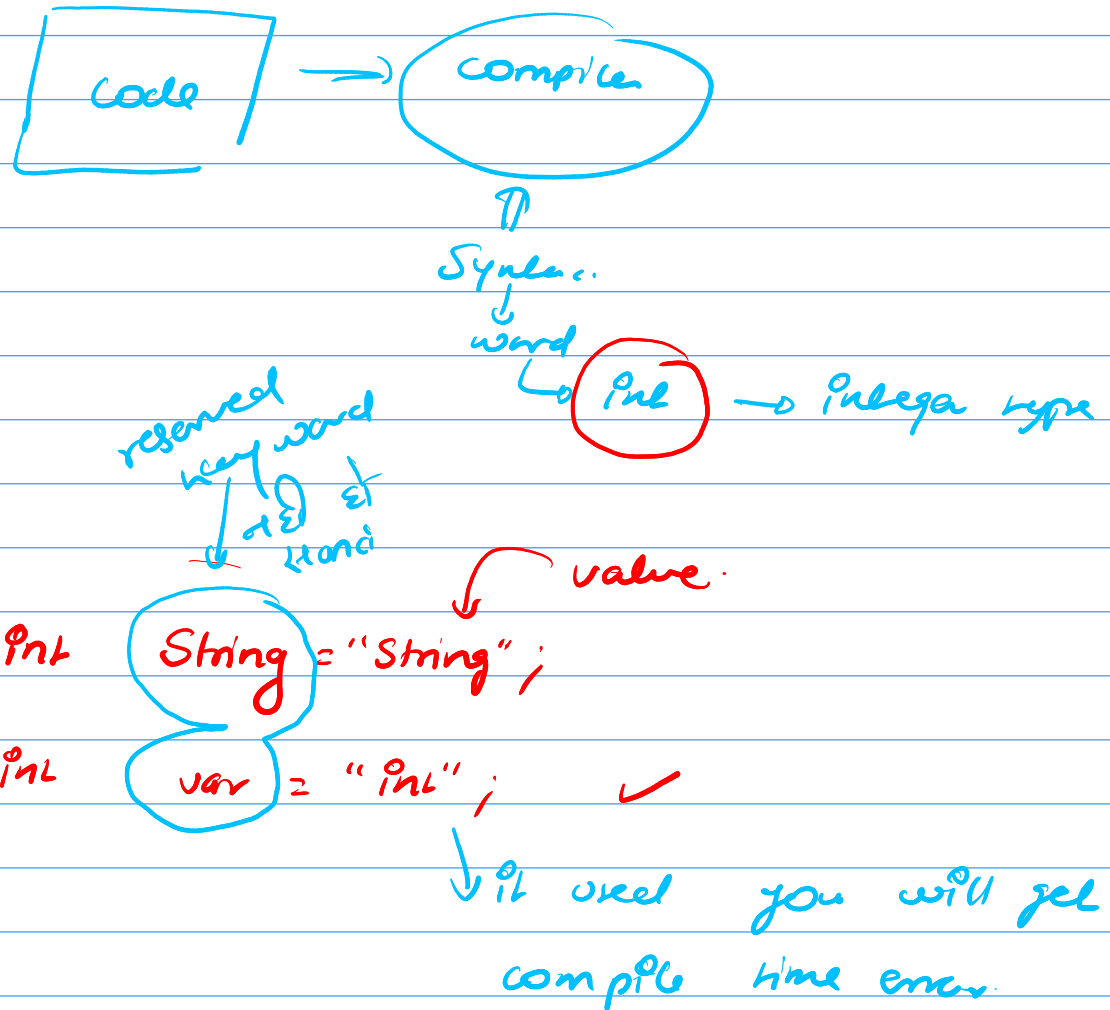 code → compiler
Syntax
word
int → integer type
reserved
key word
value.
int String = "String";
int var = "int"; ✓
it used you will get
compile time error.